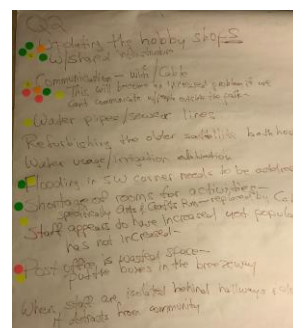 Updating the hobby shops
w/shared
Communication - with/Cable
This will become an increased problem if we
can't communicate
Water pipes/sewer lines
Refurbishing the older satellite bathhouses
Water usage/irrigation
Flooding in SW corner needs to be
Shortage of rooms for activities -
specifically
Staff appears to have increased yet
has not increased -
Post office is wasted space -
put the boxes in the breezeway
When staff are isolated behind hallways
it detracts from community